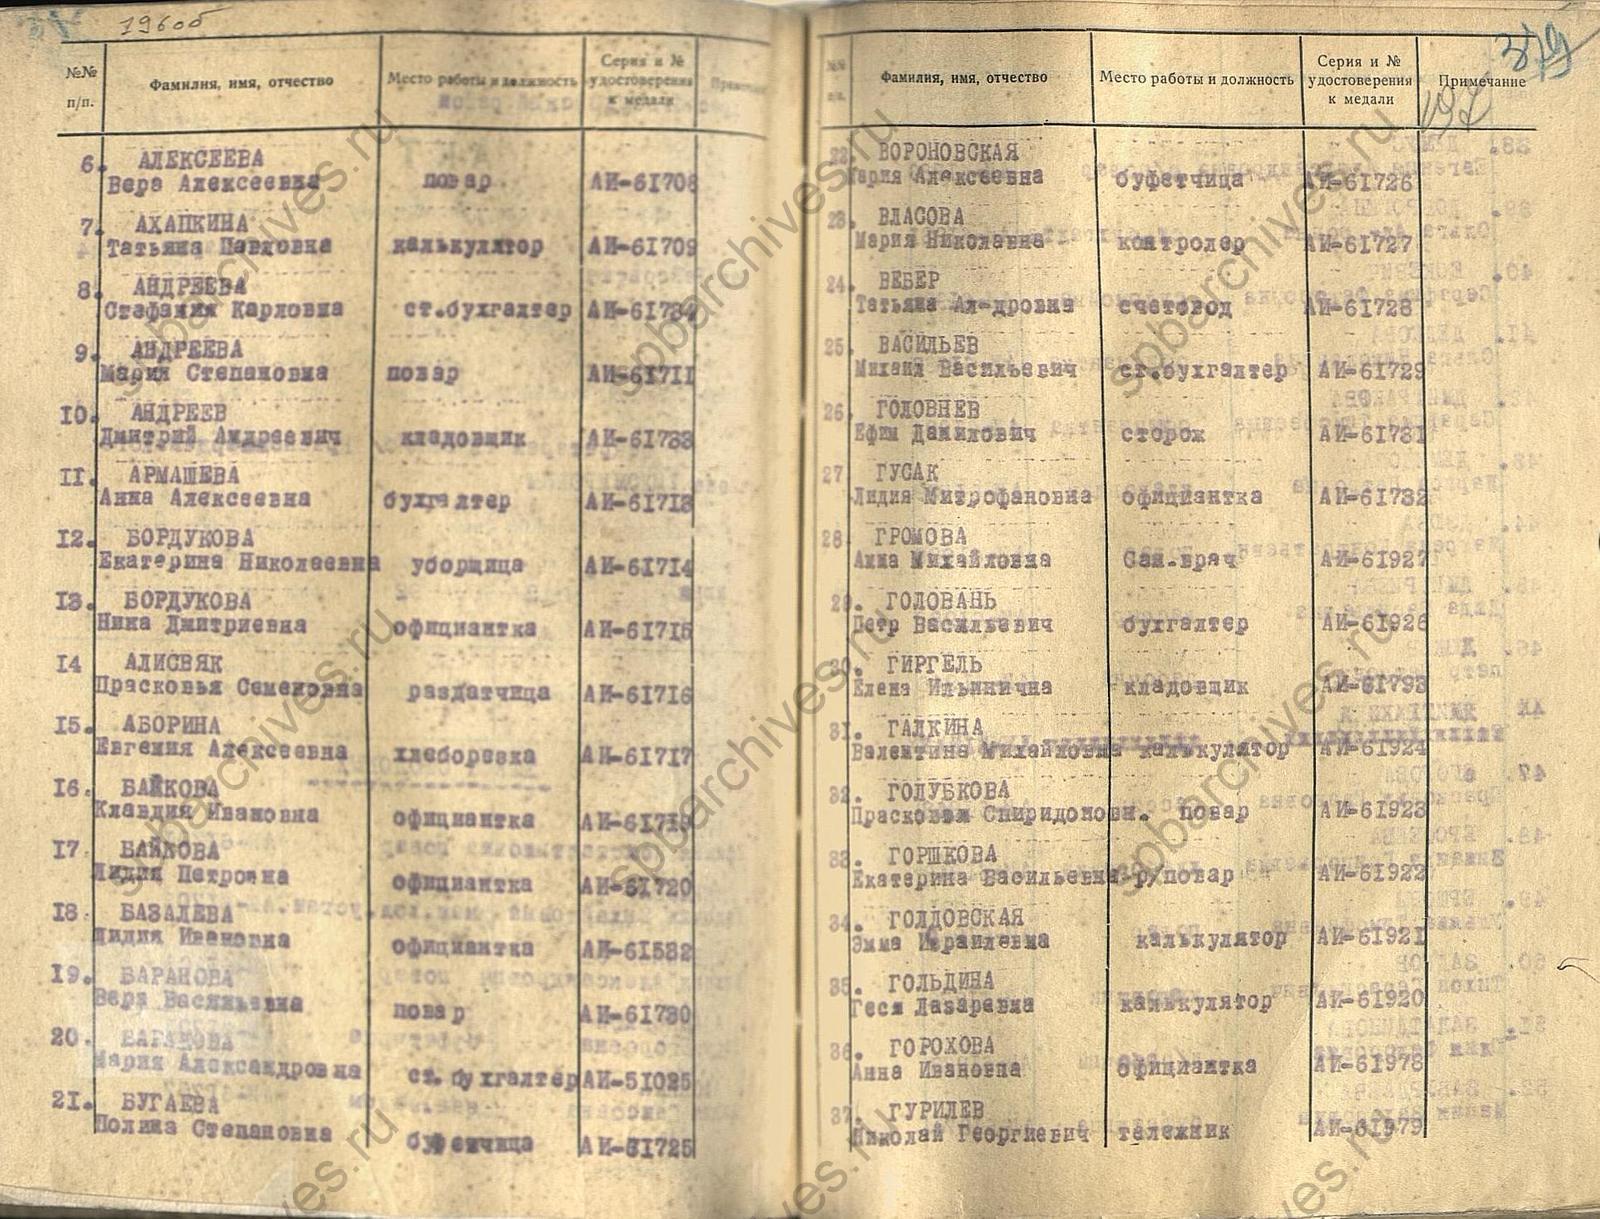 1960б
№№ п/п. Фамилия, имя, отчество Место работы и должность Серия и № удостоверения к медали
6. АЛЕКСЕЕВА
Вера Алексеевна повар АИ-61708
7. АХАПКИНА
Татьяна Павловна калькулятор АИ-61709
8. АНДРЕЕВА
Стефания Карловна ст.бухгалтер АИ-61734
9. АНДРЕЕВА
Мария Степановна повар АИ-61711
10. АНДРЕЕВ
Дмитрий Андреевич кладовщик АИ-61733
11. АРМАШЕВА
Анна Алексеевна бухгалтер АИ-61713
12. БОРДУКОВА
Екатерина Николаевна уборщица АИ-61714
13. БОРДУКОВА
Ника Дмитриевна официантка АИ-61715
14 АЛИСВЯК
Прасковья Семеновна раздатчица АИ-61716
15. АБОРИНА
Евгения Алексеевна хлеборезка АИ-61717
16. БАЙКОВА
Клавдия Ивановна официантка АИ-61719
17 БАЙКОВА
Лидия Петровна официантка АИ-61720
18. БАЗАЛЕВА
Лидия Ивановна официантка АИ-61532
19. БАРАНОВА
Вера Васильевна повар АИ-61730
20. БАРАНОВА
Мария Александровна ст.бухгалтер АИ-51025
21. БУГАЕВА
Полина Степановна буфетчица АИ-61725
379
Фамилия, имя, отчество Место работы и должность Серия и № удостоверения к медали Примечание
22. ВОРОНОВСКАЯ
Мария Алексеевна буфетчица АИ-61726
23. ВЛАСОВА
Мария Николаевна контролер АИ-61727
24. ВЕБЕР
Татьяна Ал-дровна счетовод АИ-61728
25. ВАСИЛЬЕВ
Михаил Васильевич ст.бухгалтер АИ-61729
26. ГОЛОВНЕВ
Ефим Данилович сторож АИ-61731
27 ГУСАК
Лидия Митрофановна официантка АИ-61732
28 ГРОМОВА
Анна Михайловна Сан.врач АИ-61927
29. ГОЛОВАНЬ
Петр Васильевич бухгалтер АИ-61926
30. ГИРГЕЛЬ
Елена Ильинична кладовщик АИ-61793
31. ГАЛКИНА
Валентина Михайловна калькулятор АИ-61924
32. ГОЛУБКОВА
Прасковья Спиридоновн. повар АИ-61923
33. ГОРШКОВА
Екатерина Васильевна р/повар АИ-61922
34. ГОЛДОВСКАЯ
Эмма Израилевна калькулятор АИ-61921
35. ГОЛЬДИНА
Геся Лазаревна калькулятор АИ-61920
36. ГОРОХОВА
Анна Ивановна официантка АИ-61978
37. ГУРИЛЕВ
Николай Георгиевич тележник АИ-61979
spbarchives.ru